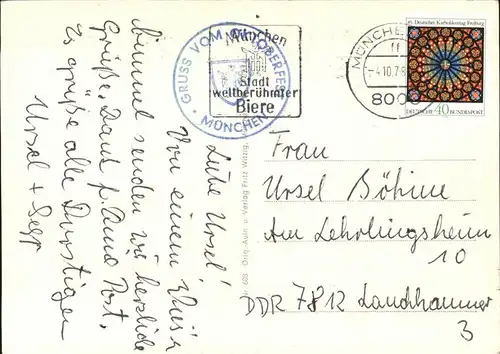 Liebe Ursel!
Von einem Wies'n
Bummel senden wir herzliche
Grüße. Dank f. Deine Post.
Es grüßen alle Durstigen
Ursel + Sepp
GRUSS VOM OKTOBERFEST
MÜNCHEN
München
Stadt
weltberühmter
Biere
MÜNCHEN
-4.10.78
8000
85. Deutscher Katholikentag Freiburg
DEUTSCHE BUNDESPOST
40
Orig.-Aufn. u. Verlag Fritz Witzig,
Frau
Ursel Böhme
Am Lehrlingsheim
10
DDR 7812 Lauchhammer
3